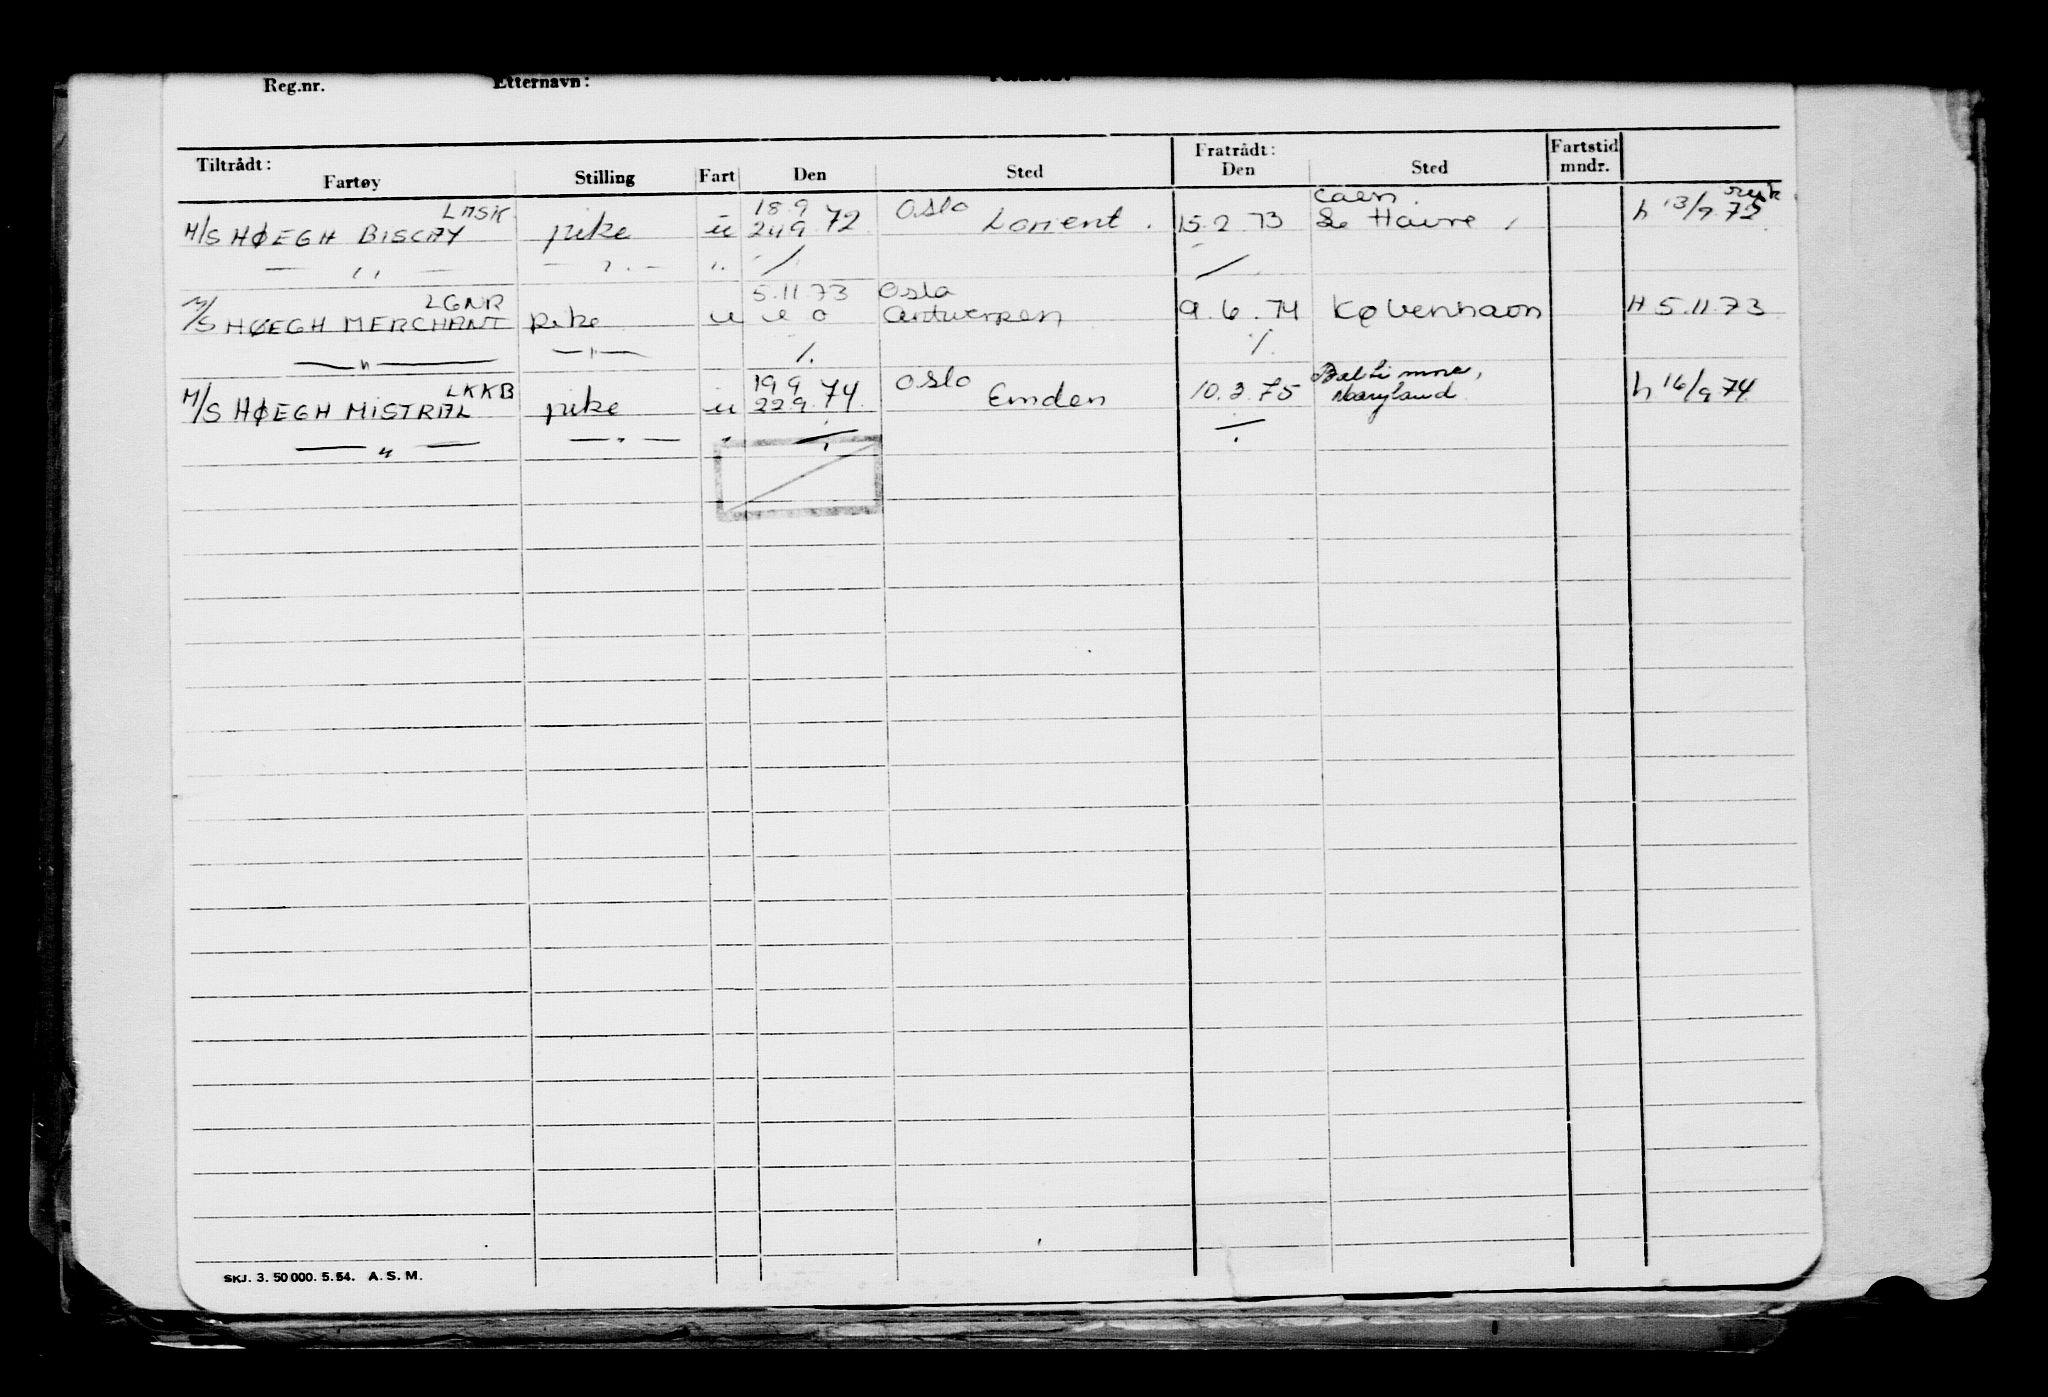 Reg.nr. Etternavn:
Tiltrådt: Fratrådt: Fartstid
Fartøy Stilling Fart Den Sted Den Sted mndr.
LMSK 18.9 Oslo Caen.
M/S HØEGH BISCAY pike u 24.9.72 Lorient. 15.2.73 Le Havre, h 13/9.72
— ,, — — ,, — ,, ⁒ ⁒
LGNR 5.11.73 Oslo
M/S HØEGH MERCHANT pike u u o Antwerpen 9.6.74 København H 5.11.73
— " — — " — ⁒ ⁒
LKKB 19.9 Oslo Baltimore,
M/S HØEGH MISTRAL pike u 22.9.74. Emden 10.3.75 Maryland h 16/9 74
— " — — " — " ⁒ ⁒
SKJ. 3. 50 000. 5. 54. A. S. M.